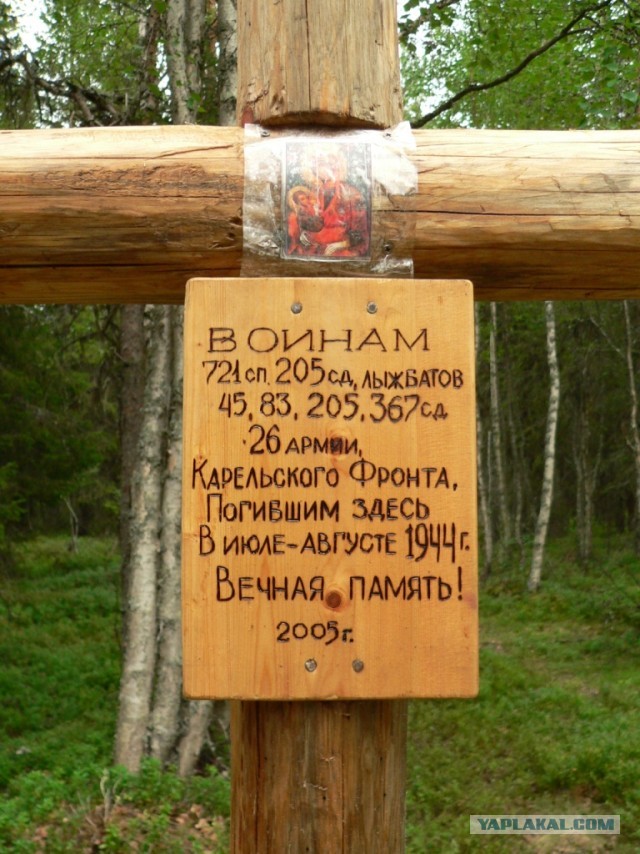 ВОИНАМ
721 сп. 205 сд, ЛЫЖБАТОВ
45, 83, 205, 367 сд
26 АРМИИ,
КАРЕЛЬСКОГО ФРОНТА,
ПОГИБШИМ ЗДЕСЬ
В ИЮЛЕ-АВГУСТЕ 1944 г.
ВЕЧНАЯ ПАМЯТЬ!
2005 г.
YAPLAKAL.COM